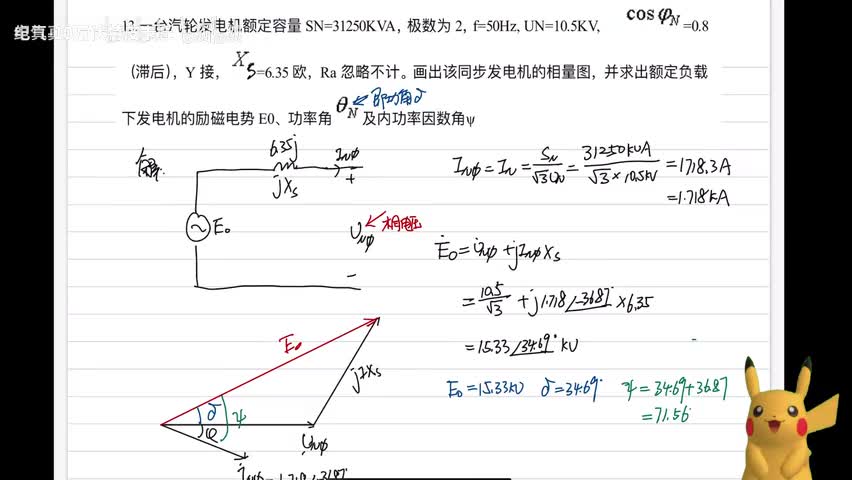 12.一台汽轮发电机额定容量 SN=31250KVA，极数为 2，f=50Hz, UN=10.5KV, cosφN=0.8
（滞后），Y 接， Xs=6.35 欧，Ra 忽略不计。画出该同步发电机的相量图，并求出额定负载
下发电机的励磁电势 E0、功率角 θN 及内功率因数角ψ
即功角δ
解:
6.35j
INφ
+
jXs
E0
UNφ
相电压
−
INφ=IN=SN/√3UN=31250kVA/√3×10.5kV=1718.3A
=1.718kA
Ė0=U̇Nφ+jİNφXs
=10.5/√3+j1.718∠-36.87°×6.35
=15.33∠34.69° kV
E0=15.33kV δ=34.69° ψ=34.69+36.87
=71.56
E0
jIXs
δ
ψ
φ
U̇Nφ
İNφ=1.718∠-36.87°